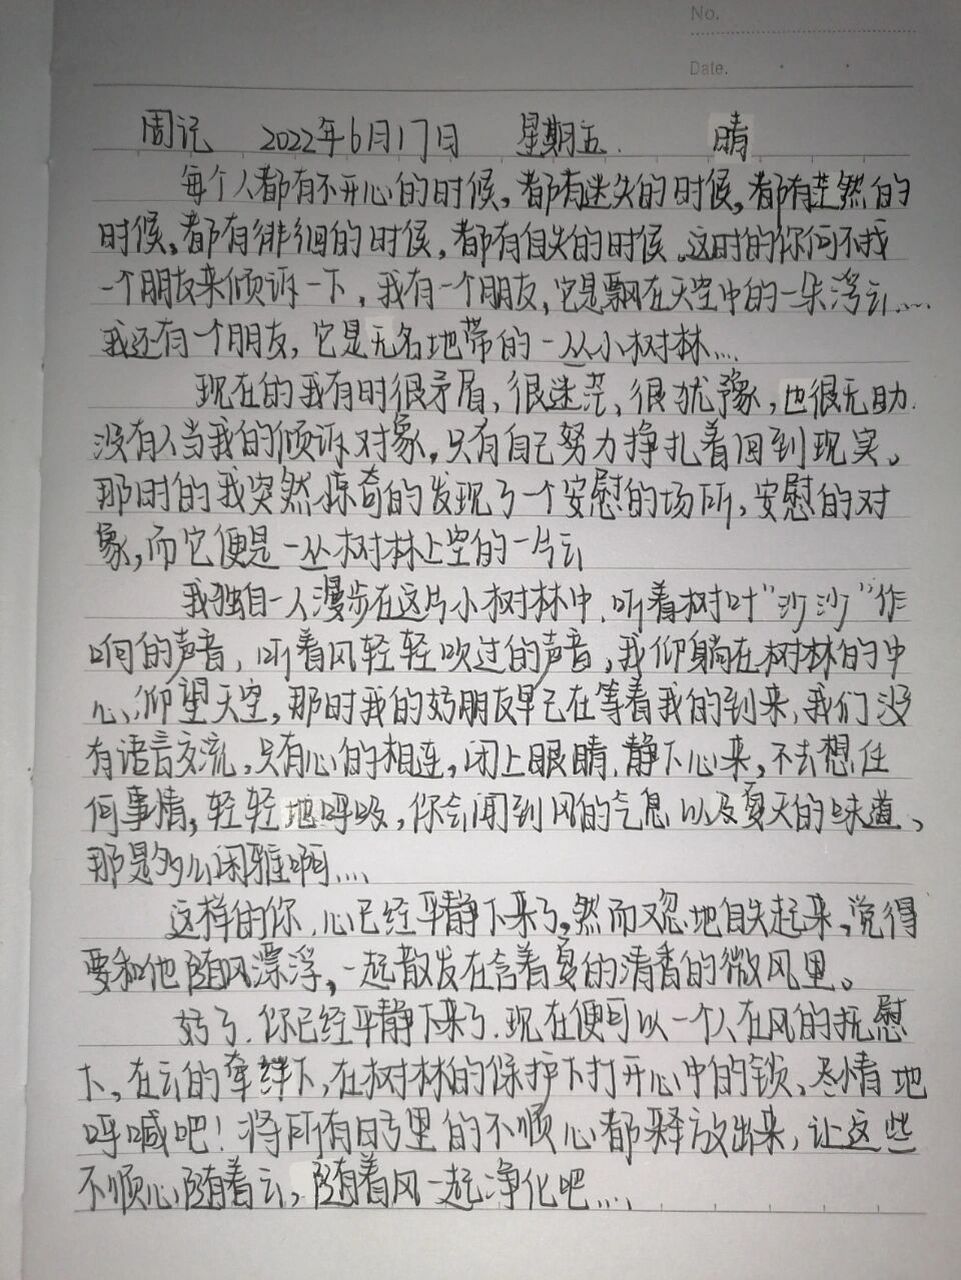 No.
Date.
周记 2022年6月17日 星期五. 晴
每个人都有不开心的时候,都有迷失的时候,都有茫然的
时候,都有徘徊的时候,都有自失的时候。这时的你何不找
一个朋友来倾诉一下,我有一个朋友,它是飘在天空中的一朵浮云....
我还有一个朋友,它是无名地带的一丛小树林...
现在的我有时很矛盾、很迷茫、很犹豫,也很无助.
没有人当我的倾诉对象,只有自己努力挣扎着回到现实。
那时的我突然惊奇的发现了一个安慰的场所,安慰的对
象,而它便是一丛树林上空的一片云
我独自一人漫步在这片小树林中,听着树叶“沙沙”作
响的声音,听着风轻轻吹过的声音,我仰躺在树林的中
心,仰望天空,那时我的好朋友早已在等着我的到来,我们没
有语言交流,只有心的相连,闭上眼睛,静下心来,不去想任
何事情,轻轻地呼吸,你会闻到风的气息以及夏天的味道、
那是多么闲雅啊....
这样的你,心已经平静下来了,然而又忽地自失起来,觉得
要和他随风漂浮,一起散发在含着夏的清香的微风里。
好了,你已经平静下来了,现在便可以一个人在风的抚慰
下,在云的牵绊下,在树林的保护下打开心中的锁、尽情地
呼喊吧!将所有日子里的不顺心都释放出来,让这些
不顺心随着云,随着风一起净化吧....